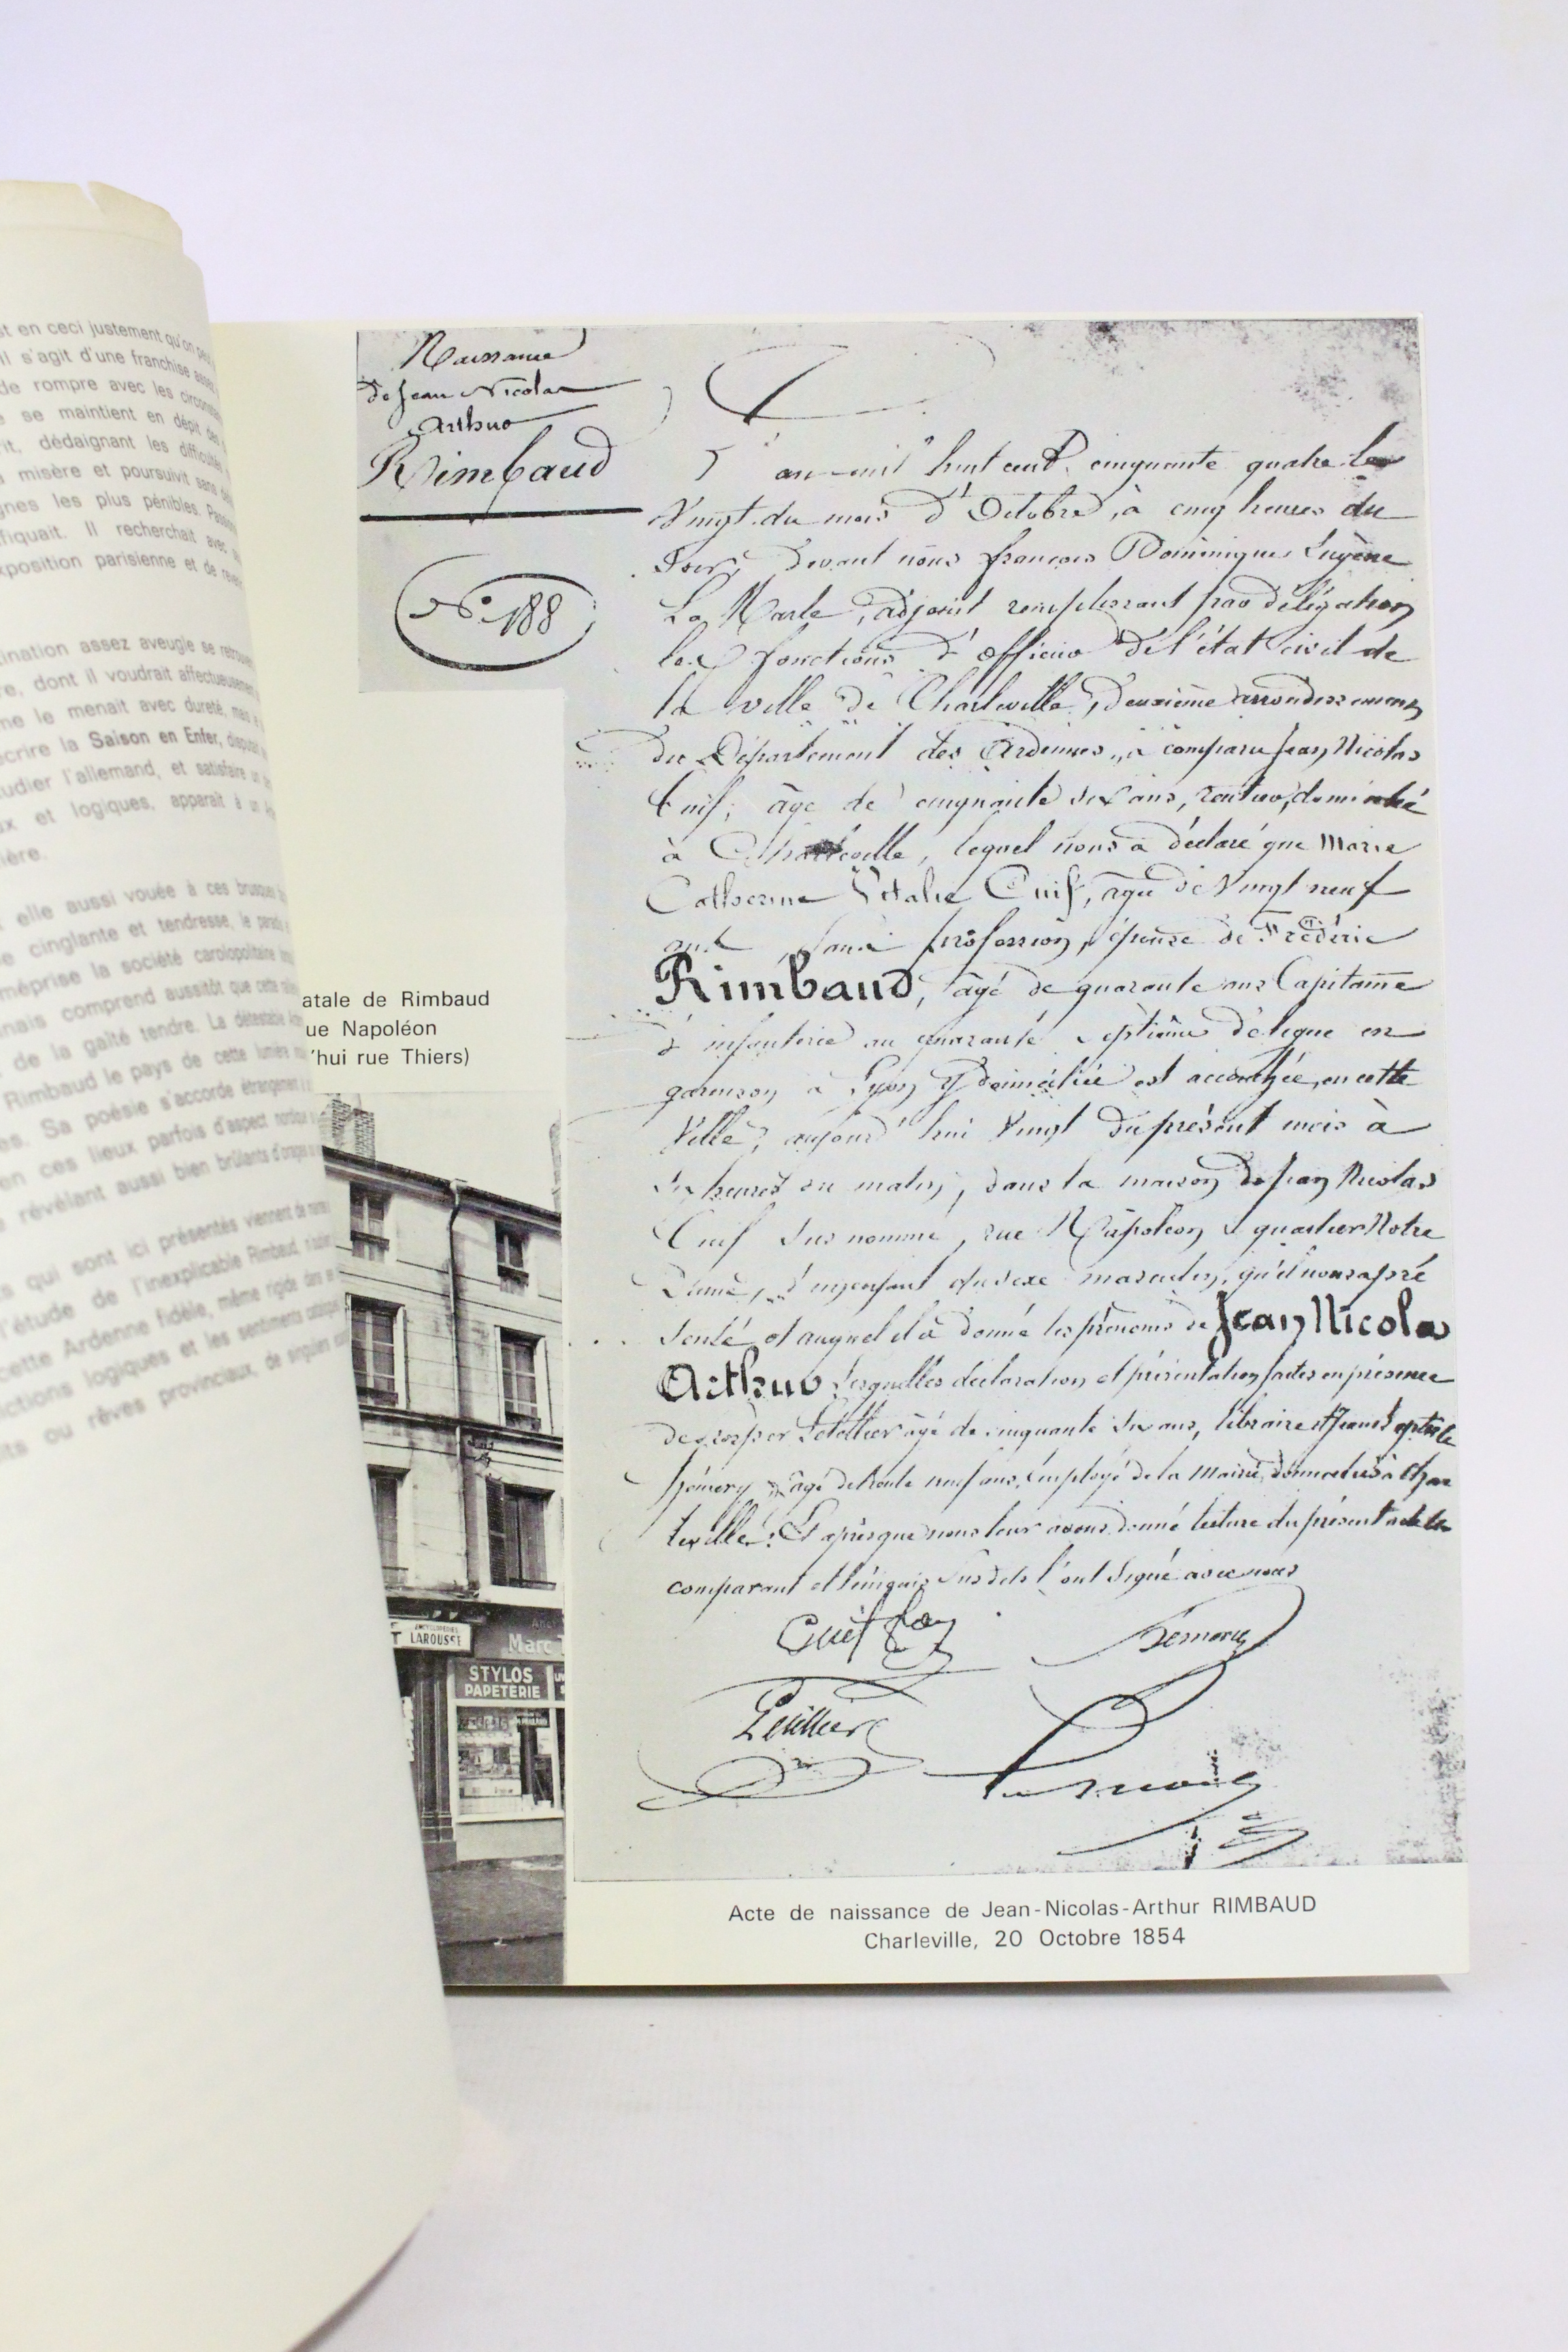 st en ceci justement qu'on peut
Il s'agit d'une franchise assez
de rompre avec les
se maintient en dépit des
rit, dédaignant les difficultés
misère et poursuivit sans
gnes les plus pénibles.
fiquait. Il recherchait avec
xposition parisienne et de
ination assez aveugle se
re, dont il voudrait affectueusement
me le menait avec dureté, mais
écrire la Saison en Enfer,
udier l'allemand, et satisfaire un
ux et logiques, apparaît à un
ière.
elle aussi vouée à ces brusques
e cinglante et tendresse, le
méprise la société carolopolitaine
mais comprend aussitôt que cette
de la gaîté tendre. La détestable
Rimbaud le pays de cette lumière
es. Sa poésie s'accorde étrangement
en ces lieux parfois d'aspect
révélant aussi bien brûlants
s qui sont ici présentés viennent de
l'étude de l'inexplicable Rimbaud.
cette Ardenne fidèle, même rigide dans
ictions logiques et les sentiments
its ou rêves provinciaux, de singulier
atale de Rimbaud
ue Napoléon
'hui rue Thiers)
ENCYCLOPEDIES
LAROUSSE
Marc
STYLOS
PAPETERIE
Naissance
de Jean Nicolas
Arthur
Rimbaud
N° 188
L'an mil huit cent cinquante quatre le
Vingt du mois d'Octobre, à cinq heures du
Soir, Devant nous François Dominique Eugène
Le Marle, adjoint remplissant par délégation
les fonctions d'officier de l'état civil de
la ville de Charleville, deuxième arrondissement
du Département des Ardennes, à comparu Jean Nicolas
Cuif, âgé de cinquante six ans, rentier, domicilié
à Charleville, lequel nous a déclaré que Marie
Catherine Vitalie Cuif, âgée de Vingt neuf
ans, sans profession, épouse de Frédéric
Rimbaud, âgé de quarante ans Capitaine
d'infanterie au quarante septième de ligne en
garnison à Lyon y domicilié est accouchée, en cette
Ville, aujourd'hui Vingt du présent mois à
Six heures du matin, dans la maison de Jean Nicolas
Cuif Sus nommé, rue Napoléon quartier Notre
Dame, d'un enfant du sexe masculin, qu'il nous a pré
senté et auquel il a donné les prénoms de Jean Nicolas
Arthur Lesquelles déclaration et présentation faites en présence
de Prosper Letellier âgé de cinquante Six ans, libraire et Jean Baptiste
hémery âgé de trente neuf ans, Employé de la Mairie, domiciliés à Char
leville. Et après que nous leur avons donné lecture du présent acte le
comparant et témoins Susdits l'ont Signé avec nous
Cuif
hémery
Letellier
Acte de naissance de Jean-Nicolas-Arthur RIMBAUD
Charleville, 20 Octobre 1854